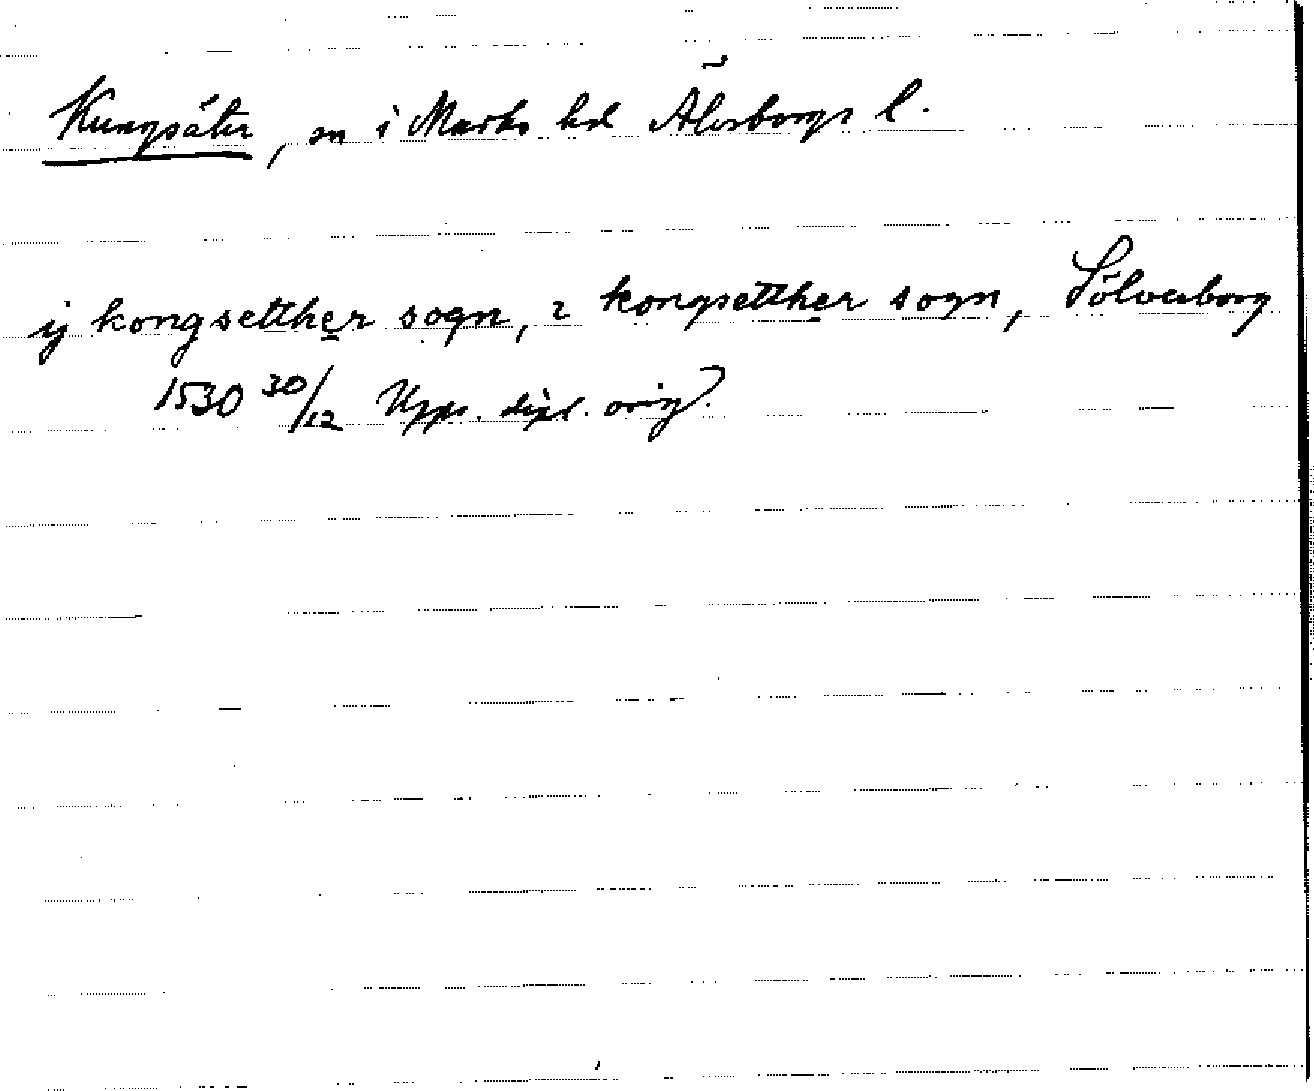 Kungsäter, sn i Marks hd Älvsborgs l.
ij kongsetther sogn, 2 kongsetther sogn, Sölvesborg
1530 30/12 Upps. dipl. orig.